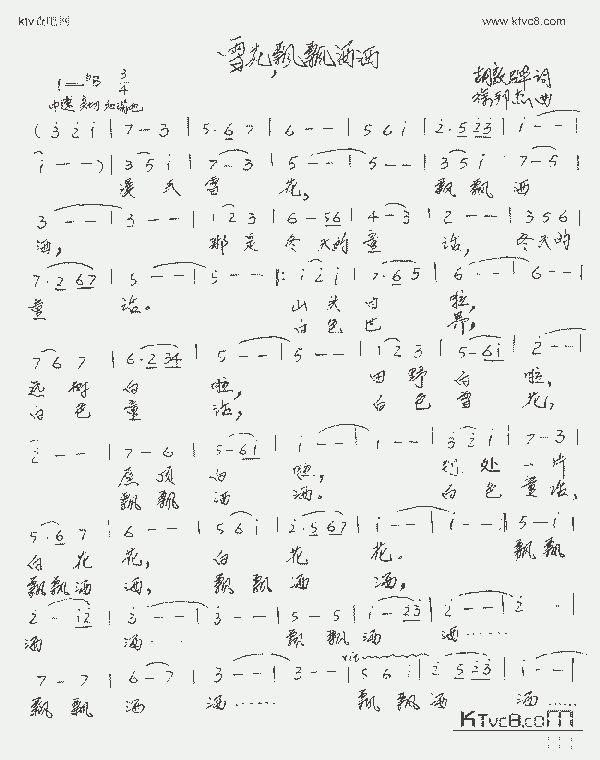 www.ktvc8.com
雪花,飘飘洒洒
3/4
词
曲
(3 2 i | 7 - 3 | 5·6 7 | 6 - - | 5 6 i | 2·5 23 | i - - |
i - -) | 3 5 i | 7 - 3 | 5 - - | 5 - - | 3 5 i | 7 - 5 |
漫天雪花, 飘飘洒
3 - - | 3 - - | 1 2 3 | 6 - 56 | 4 - 3 | 2 - - | 3 5 6 |
洒, 那是冬天的童话, 冬天的
7·2 67 | 5 - - | 5 - - |: i 2 i | 7·6 5 | 6 - - | 6 - - |
童话。 山头白啦,
白色世界,
7 6 7 | 6·2 34 | 5 - - | 5 - - | 1 2 3 | 5 - 6i | 2 - - |
远树白啦, 田野白啦,
白色童话, 白色雪花,
2 - - | 7 - 6 | 5 - 6i | i - - | i - - | 3 2 i | 7 - 3 |
屋顶白啦。 到处一片
飘飘洒洒。 白色童话,
5·6 7 | 6 - - | 5 6 i | 2·5 67 | i - - | i - - :| 5 - i |
白花花, 白花花。 飘飘
飘飘洒洒, 飘飘洒洒,
2 - i2 | 3 - - | 3 - - | 5 - 5 | i - 23 | 2 - - | 2 - - |
洒洒…… 飘飘洒洒……
rit
7 - 7 | 6 - 7 | 3 - - | 3 - - | 5 6 i | 2 5 23 | i - - |
飘飘洒洒…… 飘飘洒洒……
KTvc8.com